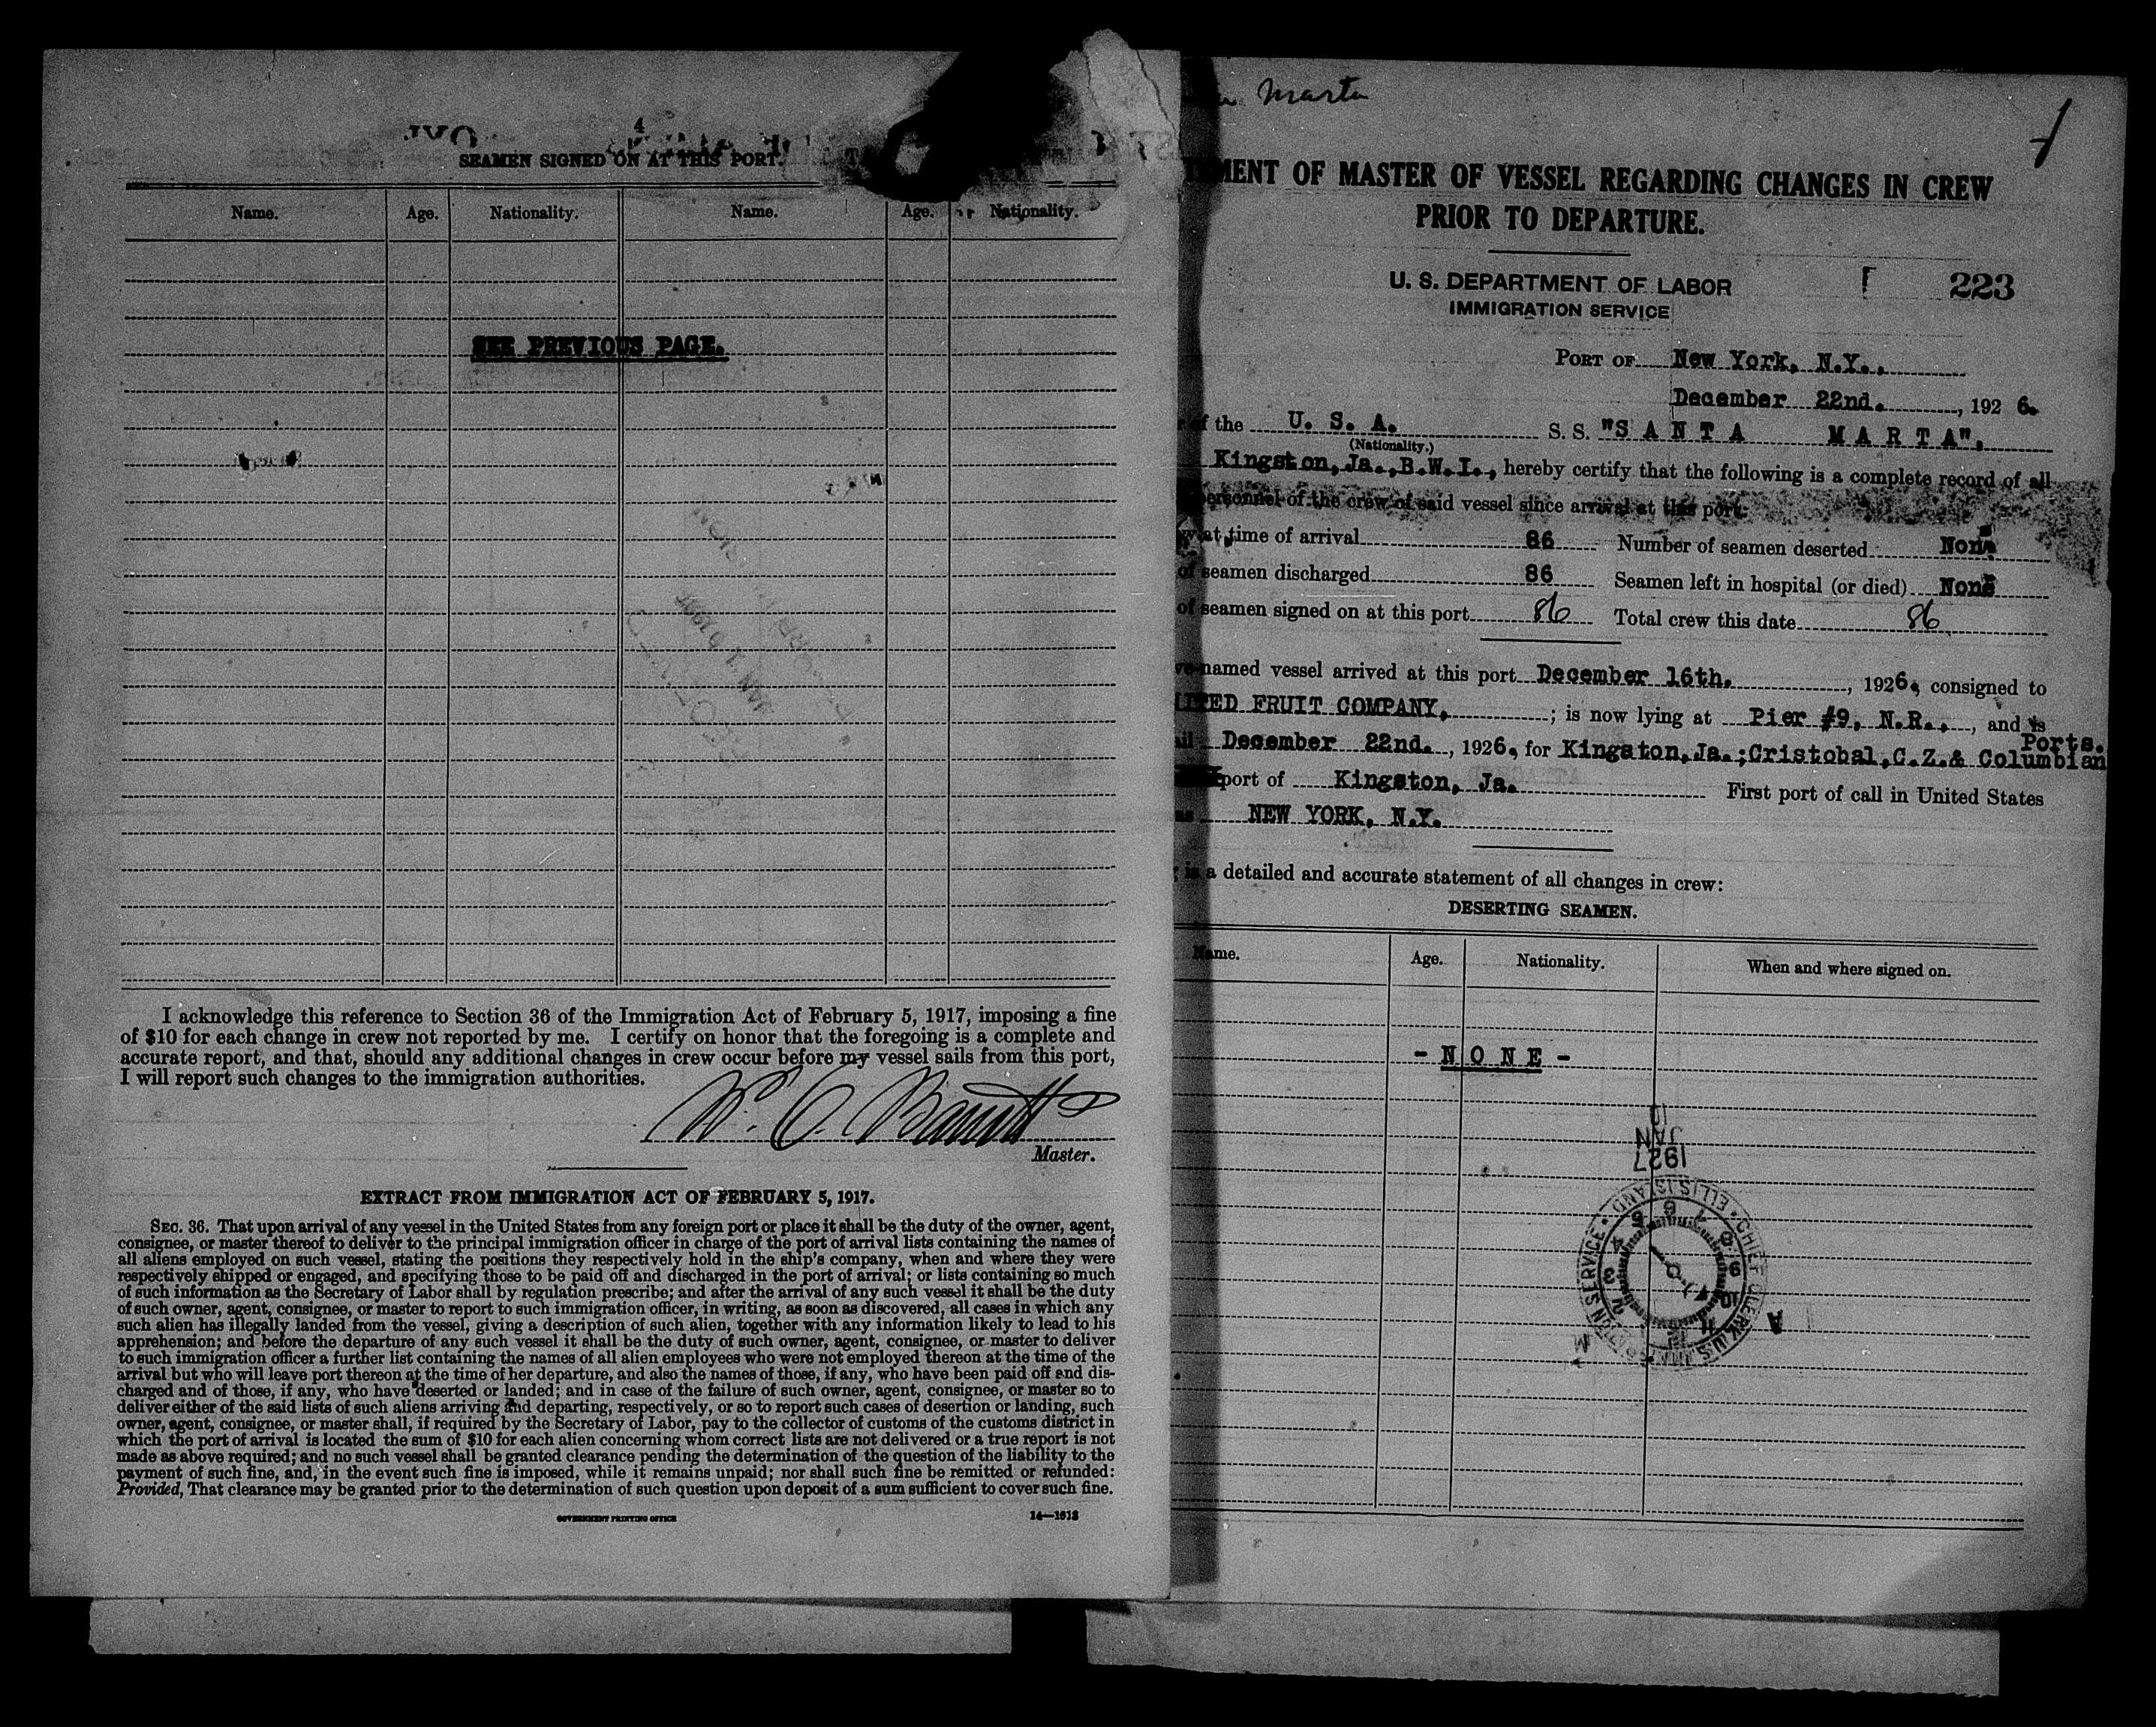 SEAMEN SIGNED ON AT THIS PORT.
Name. Age. Nationality. Name. Age. Nationality.
SEE PREVIOUS PAGE.
I acknowledge this reference to Section 36 of the Immigration Act of February 5, 1917, imposing a fine
of $10 for each change in crew not reported by me. I certify on honor that the foregoing is a complete and
accurate report, and that, should any additional changes in crew occur before my vessel sails from this port,
I will report such changes to the immigration authorities.
Master.
EXTRACT FROM IMMIGRATION ACT OF FEBRUARY 5, 1917.
SEC. 36. That upon arrival of any vessel in the United States from any foreign port or place it shall be the duty of the owner, agent,
consignee, or master thereof to deliver to the principal immigration officer in charge of the port of arrival lists containing the names of
all aliens employed on such vessel, stating the positions they respectively hold in the ship's company, when and where they were
respectively shipped or engaged, and specifying those to be paid off and discharged in the port of arrival; or lists containing so much
of such information as the Secretary of Labor shall by regulation prescribe; and after the arrival of any such vessel it shall be the duty
of such owner, agent, consignee, or master to report to such immigration officer, in writing, as soon as discovered, all cases in which any
such alien has illegally landed from the vessel, giving a description of such alien, together with any information likely to lead to his
apprehension; and before the departure of any such vessel it shall be the duty of such owner, agent, consignee, or master to deliver
to such immigration officer a further list containing the names of all alien employees who were not employed thereon at the time of the
arrival but who will leave port thereon at the time of her departure, and also the names of those, if any, who have been paid off and dis-
charged and of those, if any, who have deserted or landed; and in case of the failure of such owner, agent, consignee, or master so to
deliver either of the said lists of such aliens arriving and departing, respectively, or so to report such cases of desertion or landing, such
owner, agent, consignee, or master shall, if required by the Secretary of Labor, pay to the collector of customs of the customs district in
which the port of arrival is located the sum of $10 for each alien concerning whom correct lists are not delivered or a true report is not
made as above required; and no such vessel shall be granted clearance pending the determination of the question of the liability to the
payment of such fine, and, in the event such fine is imposed, while it remains unpaid; nor shall such fine be remitted or refunded:
Provided, That clearance may be granted prior to the determination of such question upon deposit of a sum sufficient to cover such fine.
GOVERNMENT PRINTING OFFICE
14—1613
Marta
MENT OF MASTER OF VESSEL REGARDING CHANGES IN CREW
PRIOR TO DEPARTURE.
U. S. DEPARTMENT OF LABOR
IMMIGRATION SERVICE
223
PORT OF New York, N.Y.,
December 22nd. , 192 6.
of the U. S. A. S. S. "S A N T A M A R T A",
(Nationality.)
Kingston, Ja., B.W.I., hereby certify that the following is a complete record of all
personnel of the crew of said vessel since arrival at this port:
at time of arrival 86 Number of seamen deserted None
of seamen discharged 86 Seamen left in hospital (or died) None
of seamen signed on at this port 86 Total crew this date 86
named vessel arrived at this port December 16th. , 1926, consigned to
ITED FRUIT COMPANY, ; is now lying at Pier #9, N.R., , and is
December 22nd. , 1926, for Kingston, Ja.; Cristobal, C.Z. & Columbian Ports.
port of Kingston, Ja. First port of call in United States
NEW YORK, N.Y.
is a detailed and accurate statement of all changes in crew:
DESERTING SEAMEN.
Name. Age. Nationality. When and where signed on.
- N O N E -
1927
JAN
ELLIS ISLAND